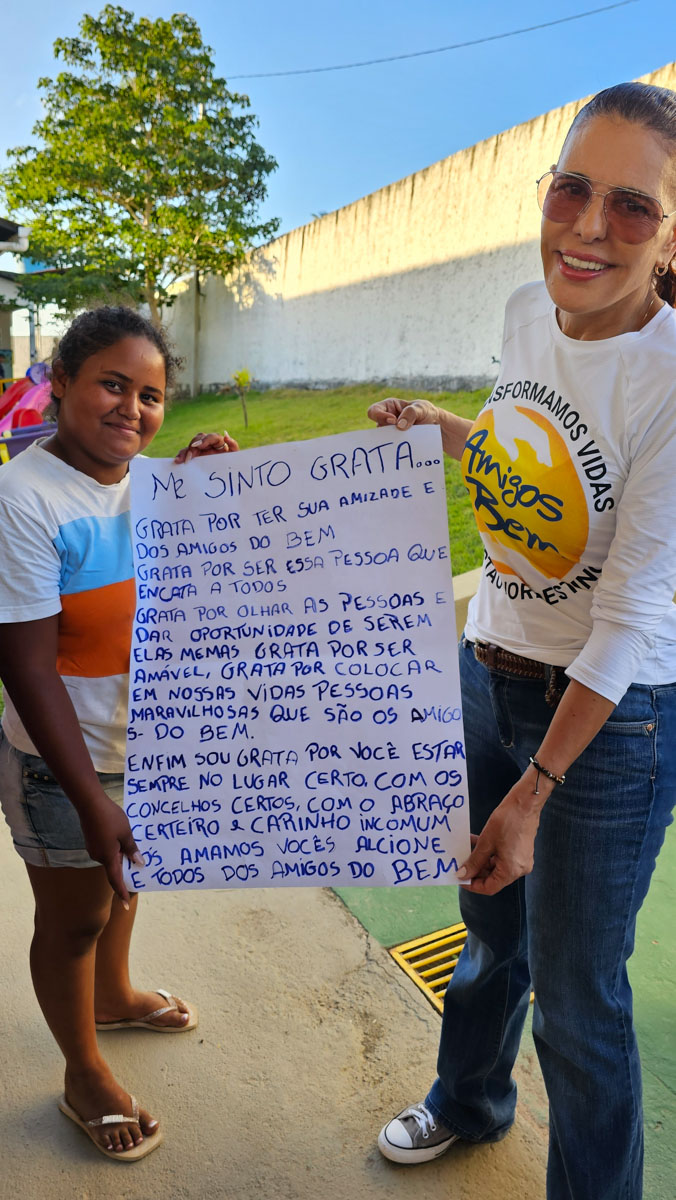 Me SINTO GRATA...
GRATA POR TER SUA AMIZADE E
DOS AMIGOS DO BEM
GRATA POR SER ESSA PESSOA QUE
ENCATA A TODOS
GRATA POR OLHAR AS PESSOAS E
DAR OPORTUNIDADE DE SEREM
ELAS MEMAS GRATA POR SER
AMÁVEL, GRATA POR COLOCAR
EM NOSSAS VIDAS PESSOAS
MARAVILHOSAS QUE SÃO OS AMIGO
S- DO BEM.
ENFIM SOU GRATA POR VOCÊ ESTAR
SEMPRE NO LUGAR CERTO, COM OS
CONCELHOS CERTOS, COM O ABRAÇO
CERTEIRO e CARINHO INCOMUM
NÓS AMAMOS VOCÊS ALCIONE
E TODOS DOS AMIGOS DO BEM
NSFORMAMOS VIDAS
Amigos
Bem